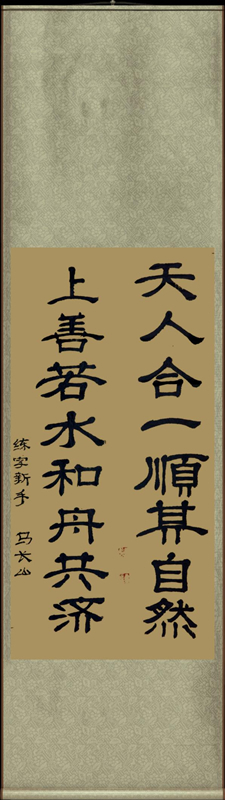 天人合一順其自然
上善若水和舟共济
练字新手 马长山